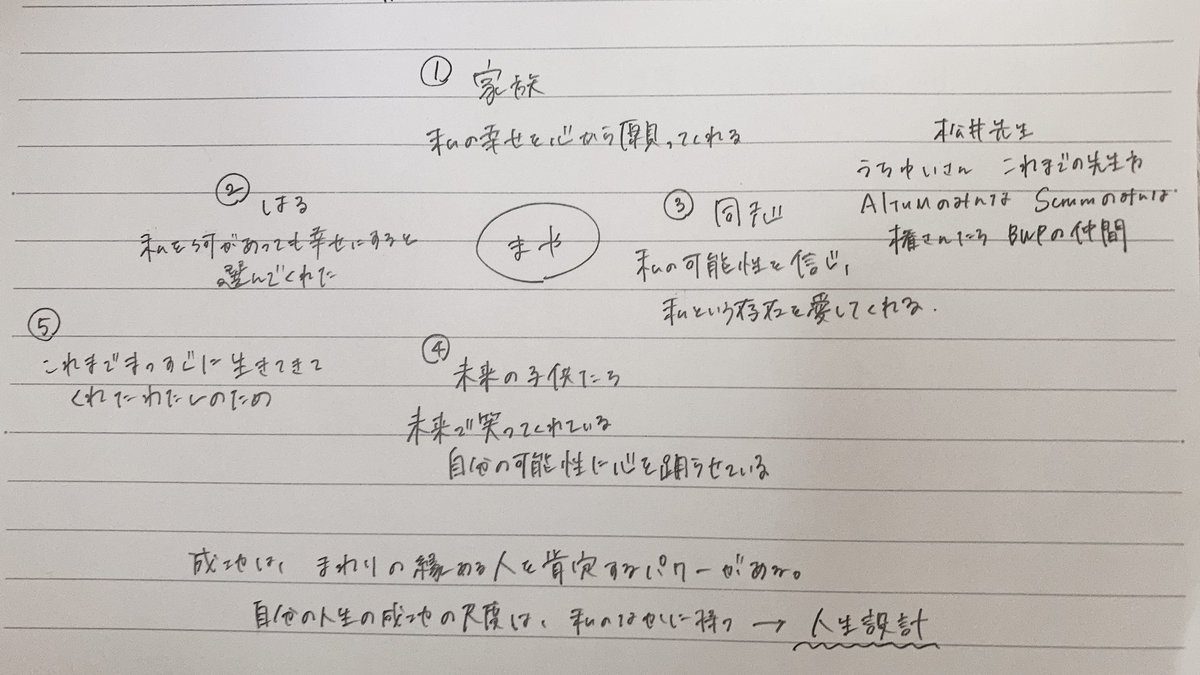 ① 家族
私の幸せを心から願ってくれる
② はる
私を何があっても幸せにすると
選んでくれた
まや
③ 同志
私の可能性を信じ、
私という存在を愛してくれる.
松井先生
うちゆいさん これまでの先生方
AlTUMのみんな Scmmのみんな
権さんたち BWPの仲間
④ 未来の子供たち
未来で笑ってくれている
自分の可能性に心を踊らせている
⑤
これまでまっすぐに生きてきて
くれたわたしのため
成功は、まわりの縁ある人を肯定するパワーがある。
自分の人生の成功の尺度は、私のなかに持つ → 人生設計